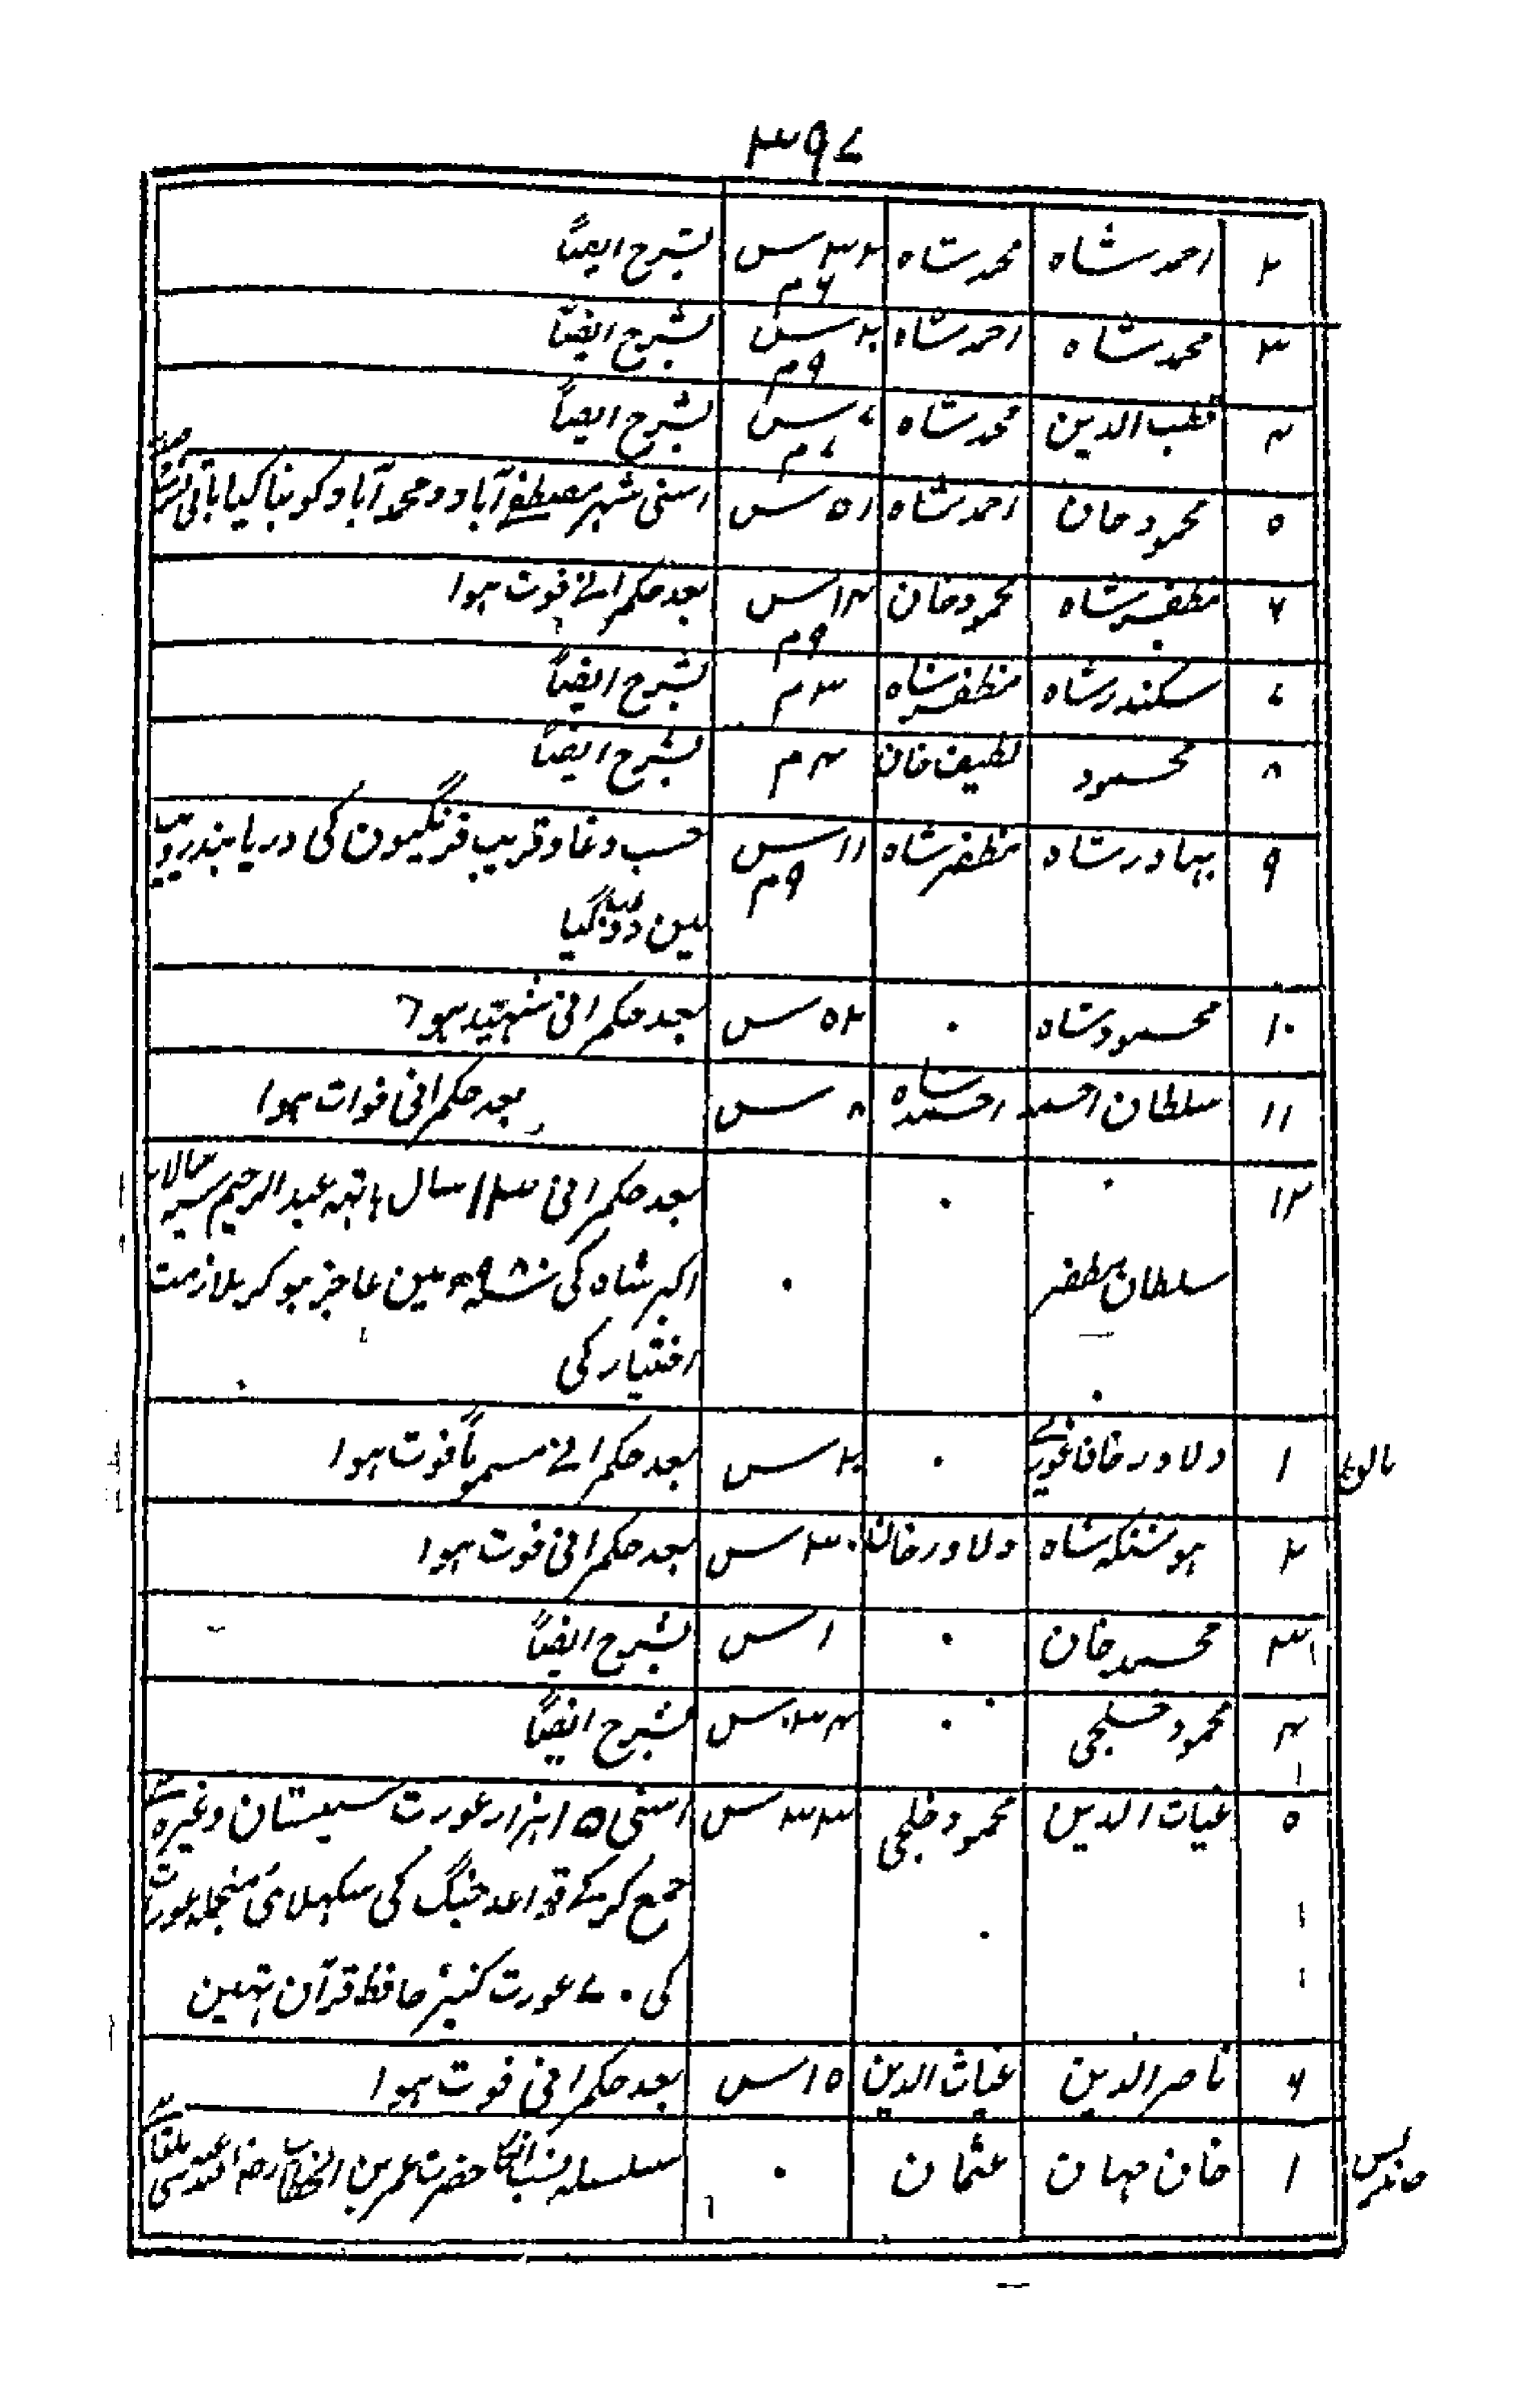 ۳۹۷
۲ احمد شاہ محمد شاہ ۳۲ س ۶ م بشرح ایضاً
۳ محمد شاہ احمد شاہ ۲ س ۹ م بشرح ایضاً
۴ قطب الدین محمد شاہ ۷ س ۷ م بشرح ایضاً
۵ محمود خان احمد شاہ ۵۱ س اسنی شہر مصطفے آباد و محمد آباد کو بنا کیا باقی
۶ مظفر شاہ محمود خان ۱۴ س ۹ م بعد حکمرانے فوت ہوا
۷ سکندر شاہ مظفر شاہ ۳ م بشرح ایضاً
۸ محمود لطیف خان ۴ م بشرح ایضاً
۹ بہادر شاہ مظفر شاہ ۱۱ س ۹ م حسب دغا و فریب فرنگیون کی دریا بندر
مین ڈوب گیا
۱۰ محمود شاہ ۰ ۵۲ س بعد حکمرانی شہید ہوا
۱۱ سلطان احمد احمد شاہ ۸ س بعد حکمرانی فوات ہوا
۱۲ سلطان مظفر ۰ ۰ بعد حکمرانی ۱۳ سال ہاتہہ عبد الرحیم سپہ سالار
اکبر شاہ کی مین عاجز ہو کر ملازمت
اختیار کی
مالوہ ۱ دلاور خان غوری ۰ ۲۰ س بعد حکمرانے مسموماً فوت ہوا
۲ ہوشنگ شاہ دلاور خان ۳۰ س بعد حکمرانی فوت ہوا
۳ محمد خان ۰ ۱ س بشرح ایضاً
۴ محمود خلجی ۰ ۳۴ س بشرح ایضاً
۵ غیاث الدین محمود خلجی ۳۳ س اسنی ۱۵ ہزار عورت سیستان وغیرہ سے
جمع کر کے قواعد جنگ کی سکہلائی منجملہ عورات
کی ۷۰ عورت کنیز حافظ قرآن تہین
۶ ناصر الدین غیاث الدین ۱۵ س بعد حکمرانی فوت ہوا
خاندیس ۱ خان جہان عثمان ۰ سلسلہ نسب انکا حضرت عمر بن الخطاب رضہ